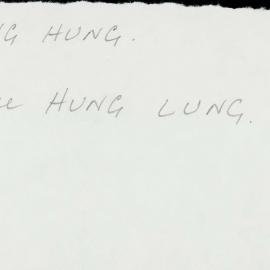 NG HUNG.
HUNG LUNG.